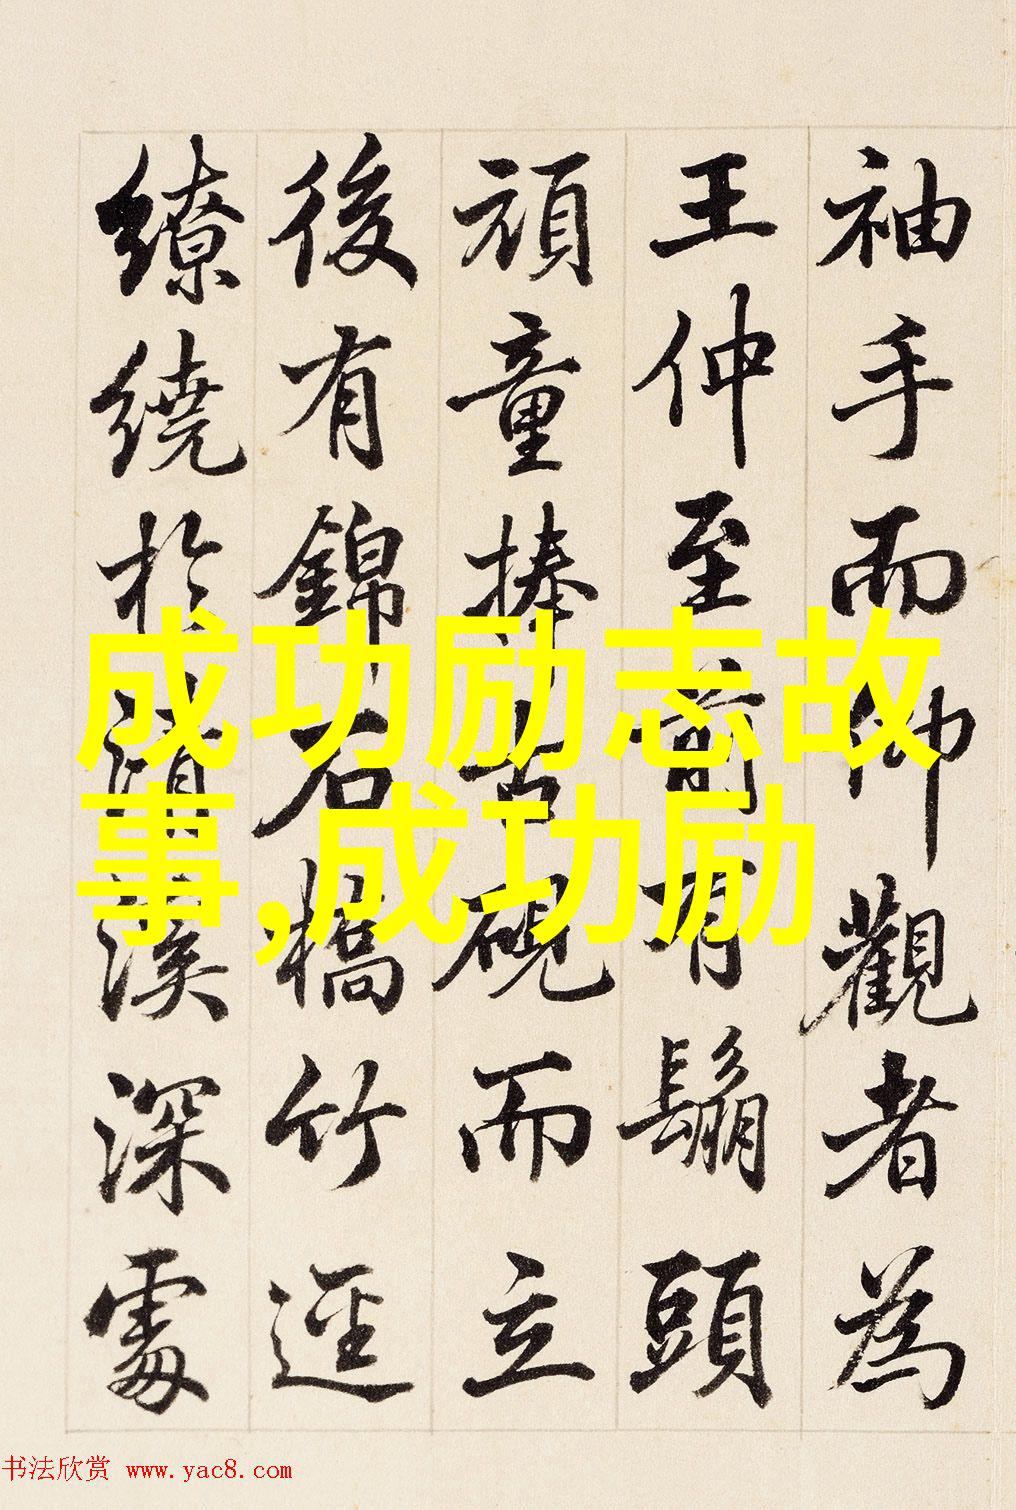 袖手而仰觀者為
王仲至前有鬅頭
頑童捧古硯而立
後有錦石橋竹逕
繚繞於清溪深處
成功励志故
事,成功励
书法欣赏 www.yac8.com